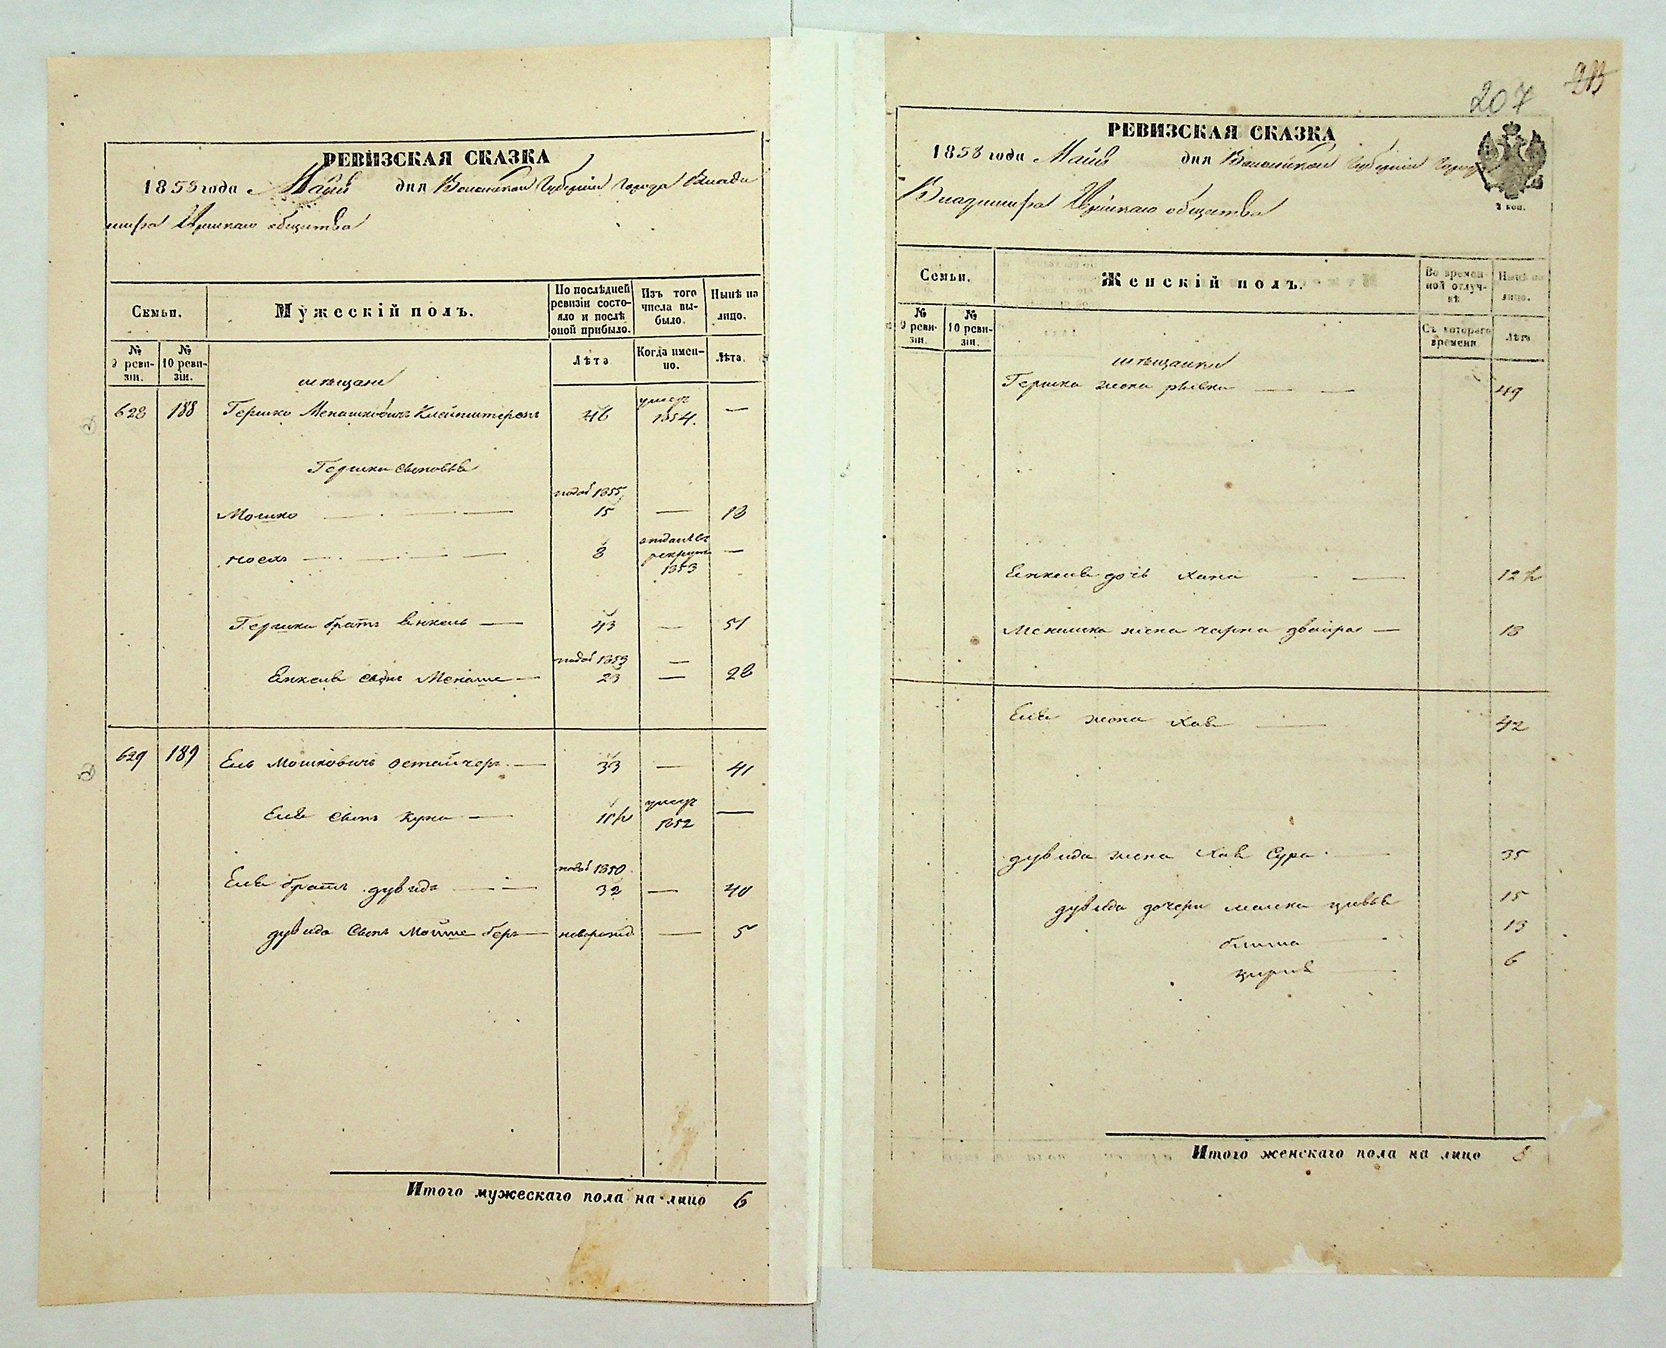 РЕВИЗСКАЯ СКАЗКА
1858 года Мая дня Волынской Губернии города Влади
мира Еврейскаго общества
Семьи.
Мужескій полъ.
По послѣдней ревизіи состояло и послѣ оной прибыло.
Изъ того числа выбыло.
Нынѣ на лицо.
№ 9 ревизіи.
№ 10 ревизіи.
Лѣта
Когда именно.
Лѣта.
мѣщане
628 188 Гершко Менашковичъ Клейнштернъ 46 умеръ 1854. —
Гершка сыновья
Мошко 15 — 18
8 отданъ въ рекруты 1853 —
Гершка братъ Енкель — 43 — 51
Енкеля сынъ Менаше — 23 — 28
629 189 Ель Мошковичъ — 33 — 41
Еля сынъ — умеръ 1852 —
Еля братъ Дувидъ 32 — 40
Дувида сынъ Мошше Беръ — новорожд — 5
Итого мужескаго пола на лицо 6
207
РЕВИЗСКАЯ СКАЗКА
1858 года Мая дня Волынской Губерніи города
Владимира Еврейскаго общества
2 коп.
Семьи.
Женскій полъ.
Во временной отлучкѣ
Нынѣ на лицо.
№ 9 ревизіи.
№ 10 ревизіи.
Съ котораго времени
Лѣта
мѣщанки
Гершка жена Ривка 49
Енкеля дочь Хана 12 ½
Менашка жена Чарна Двойра — 18
Еля жена Хая 42
Дувида жена Хая Сура 35
Дувида дочери Малка 15
13
6
Итого женскаго пола на лицо 8